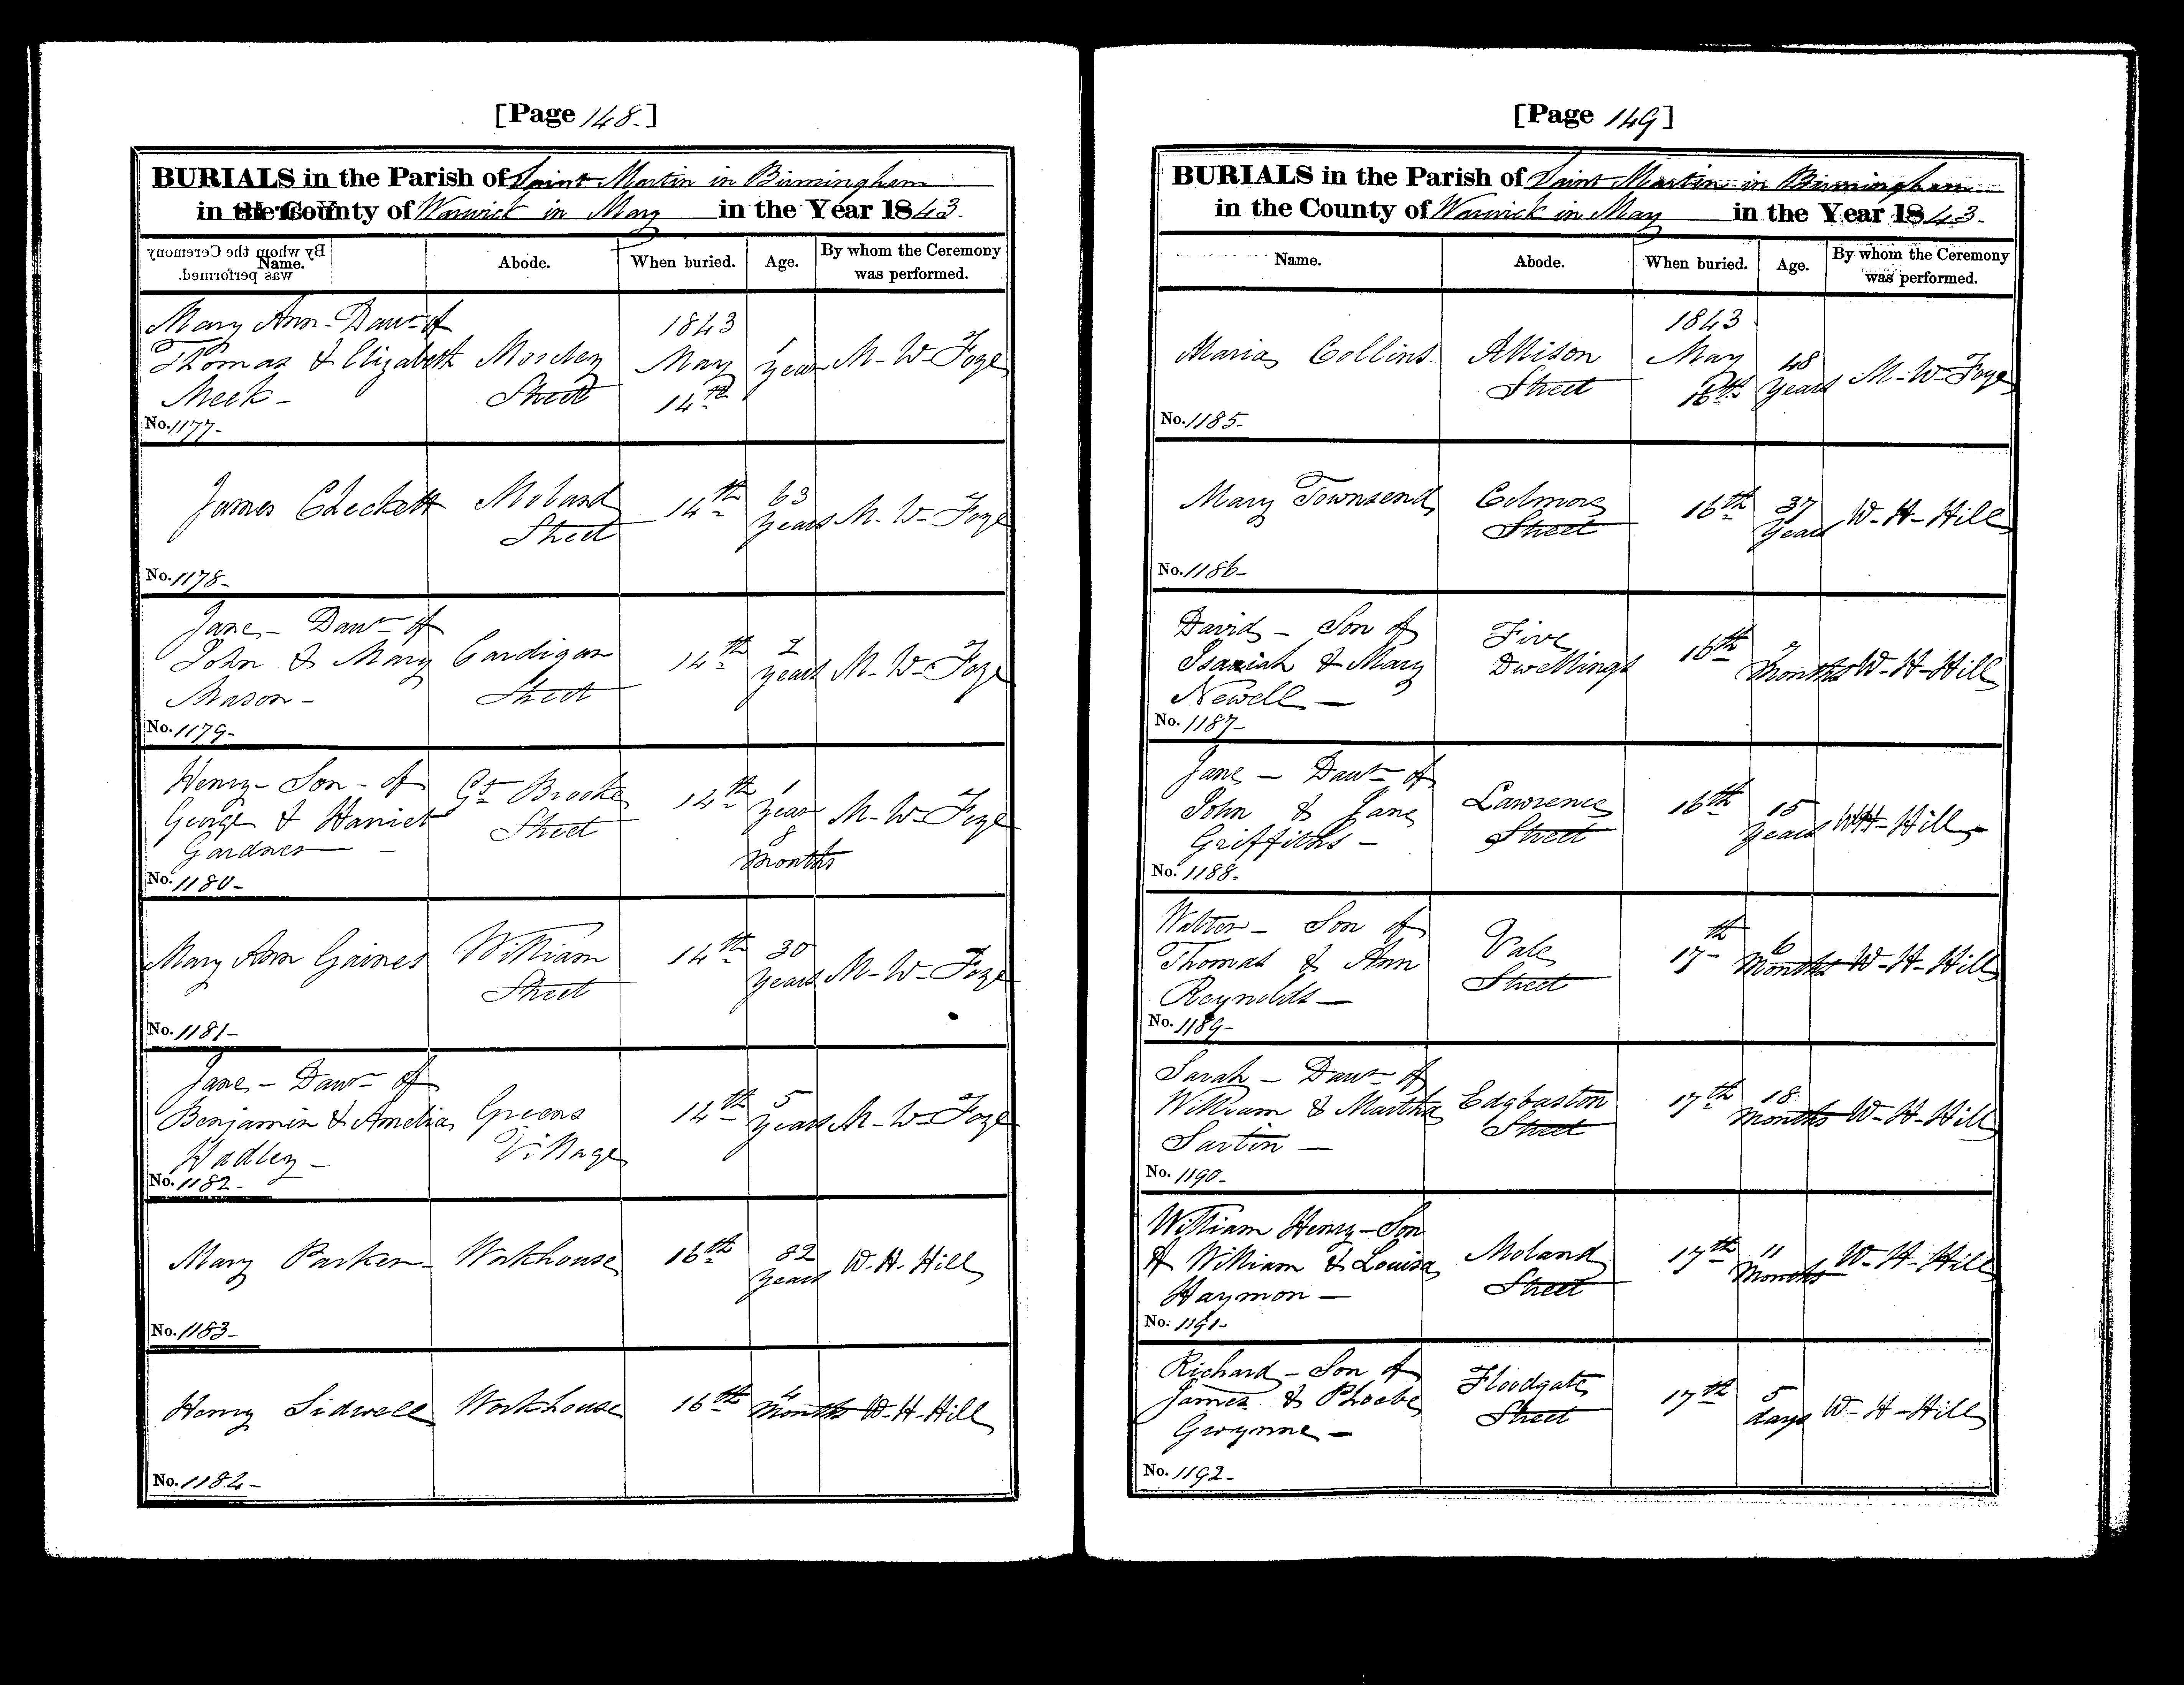 [Page 148.]
BURIALS in the Parish of Saint Martin in Birmingham
in the County of Warwick in May in the Year 1843.
Name. Abode. When buried. Age. By whom the Ceremony was performed.
Mary Ann - Daur of
Thomas & Elizabeth
Meek -
Moseley
Street
1843
May
14th
1
Year
M. W. Foye
No. 1177-
James Checkett
Moland
Street
14th
63
Years
M. W. Foye
No. 1178-
Jane - Daur of
John & Mary
Mason -
Cardigan
Street
14th
2
years
M. W. Foye
No. 1179-
Henry - Son - of
George & Harriet
Gardner -
Gt Brooke
Street
14th
1
Year
8
Months
M. W. Foye
No. 1180-
Mary Ann Gaines
William
Street
14th
30
Years
M. W. Foye
No. 1181-
Jane - Daur of
Benjamin & Amelia
Hadley -
Greens
Village
14th
5
Years
M. W. Foye
No. 1182-
Mary Parker -
Workhouse
16th
82
Years
W. H. Hill
No. 1183-
Henry Sidwell
Workhouse
16th
4
Months
W. H. Hill
No. 1184-
[Page 149]
BURIALS in the Parish of Saint Martin in Birmingham
in the County of Warwick in May in the Year 1843.
Name. Abode. When buried. Age. By whom the Ceremony was performed.
Maria Collins
Allison
Street
1843
May
16th
48
Years
M. W. Foye
No. 1185-
Mary Townsend
Edmons
Street
16th
37
Years
W - H - Hill
No. 1186-
David - Son of
Isaaiah & Mary
Newell -
Five
Dwellings
16th
Months
W - H - Hill
No. 1187-
Jane - Daur of
John & Jane
Griffiths -
Lawrence
Street
16th
15
Years
WH - Hill -
No. 1188-
Walter - Son of
Thomas & Ann
Reynolds -
Vale
Street
17th
6
Months
W - H - Hill
No. 1189-
Sarah - Daur of
William & Martha
Sartin -
Edgbaston
Street
17th
18
Months
W - H - Hill
No. 1190-
William Henry - Son
of William & Louisa
Haymon -
Moland
Street
17th
11
Months
W - H - Hill
No. 1191-
Richard - Son of
James & Phoebe
Gwynne -
Floodgate
Street
17th
5
days
W - H - Hill
No. 1192-